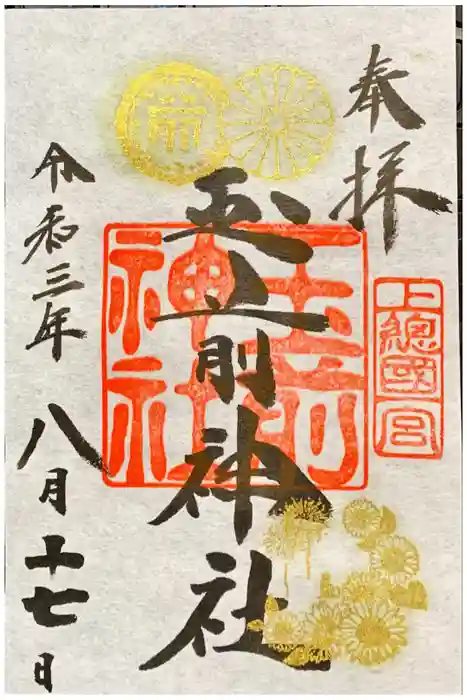 奉拝
上總國一宮
玉前神社
玉前神社
令和三年八月十七日